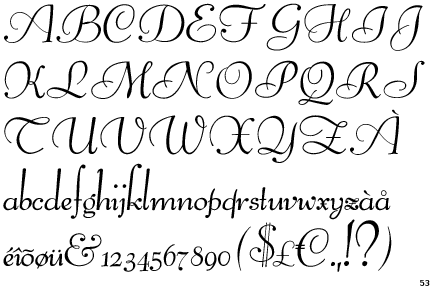 ABCDEFGHIJ
KLMNOPQRS
TUVWXYZÀ
abcdefghijklmnopqrstuvwxyzàå
éîõøü&1234567890($£€.,!?)
53